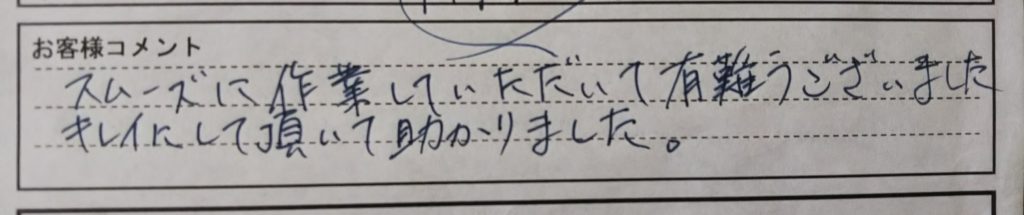 お客様コメント
スムーズに作業していただいて有難うございました
キレイにして頂いて助かりました。